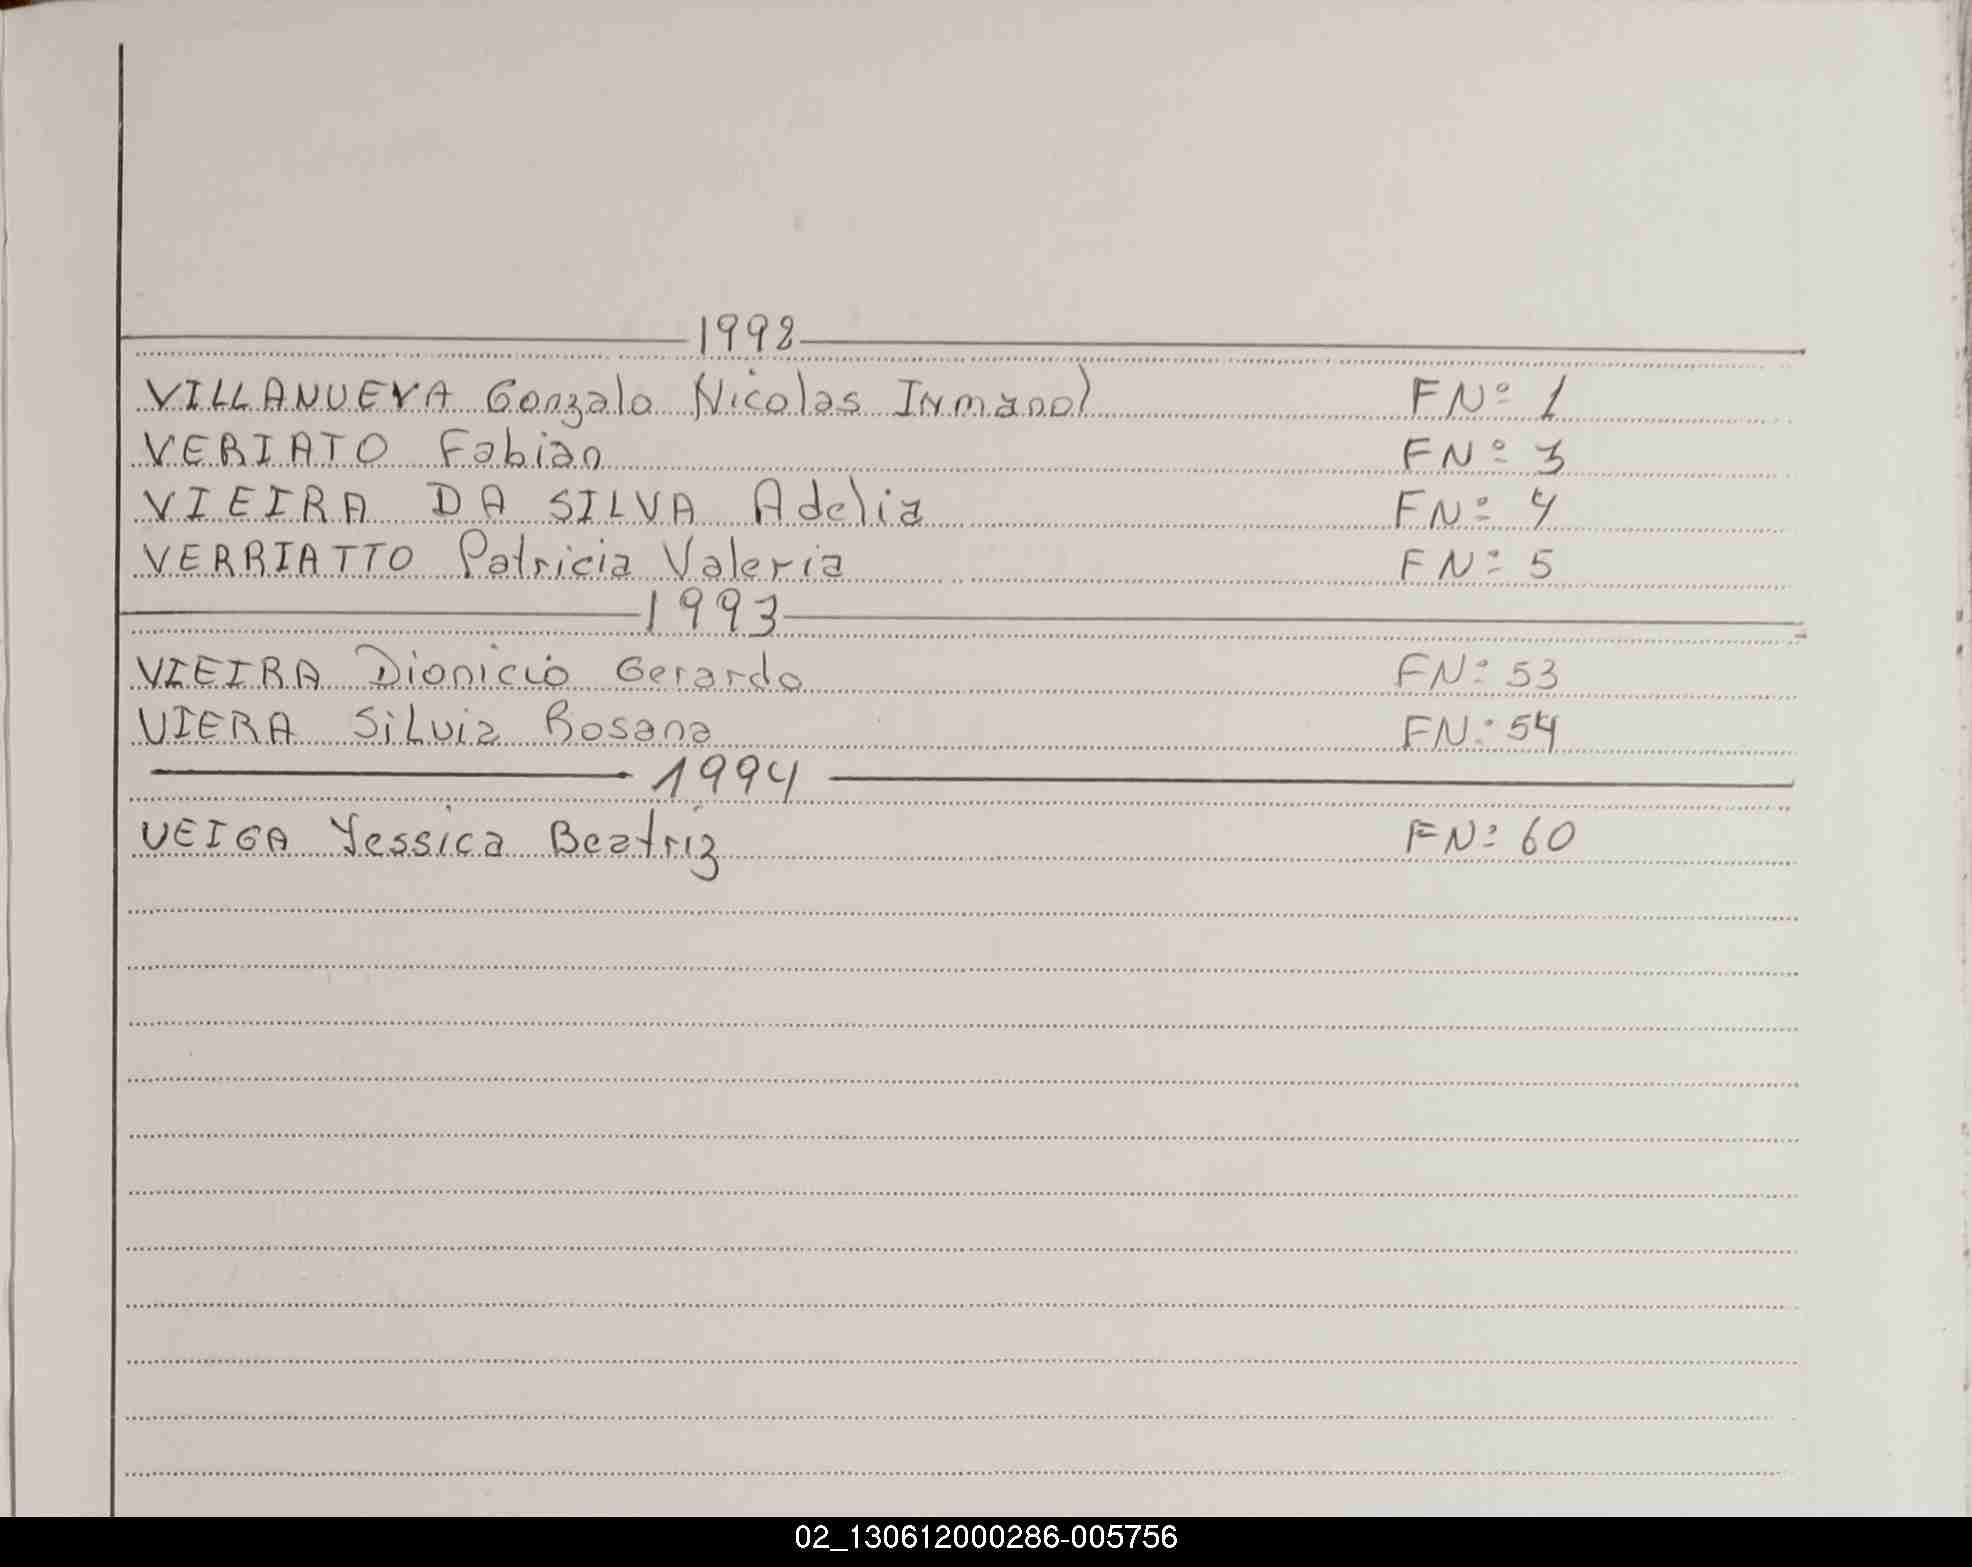 1992
VILLANUEVA Gonzalo Nicolas Inmanol FNº 1
VERIATO Fabian FNº 3
VIEIRA DA SILVA Adelia FNº 4
VERRIATTO Patricia Valeria FNº 5
1993
VIEIRA Dionicio Gerardo FNº 53
VIERA Silvia Rosana FNº 54
1994
VEIGA Yessica Beatriz FNº 60
02_130612000286-005756